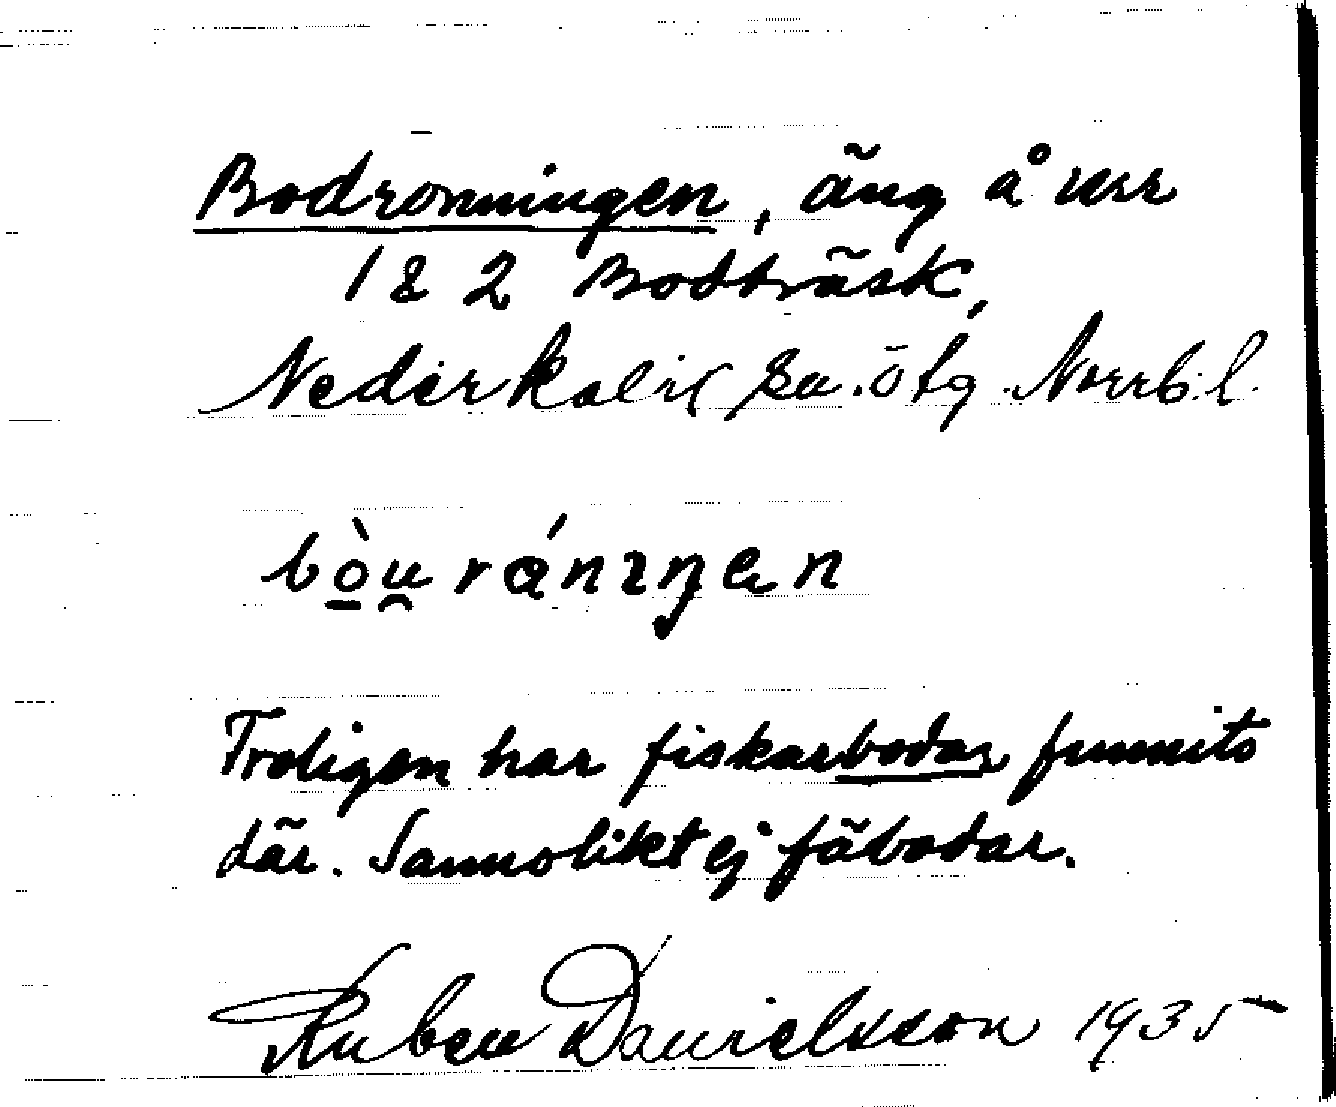 Bodronningen, äng å nrr
1 & 2 Bodträsk,
Nederkalix sn. ö tg. Norrb. l.
bò̱u̯ ránıŋen
Troligen har fiskarbodar funnits
där. Sannolikt ej fäbodar.
Ruben Danielsson 1935